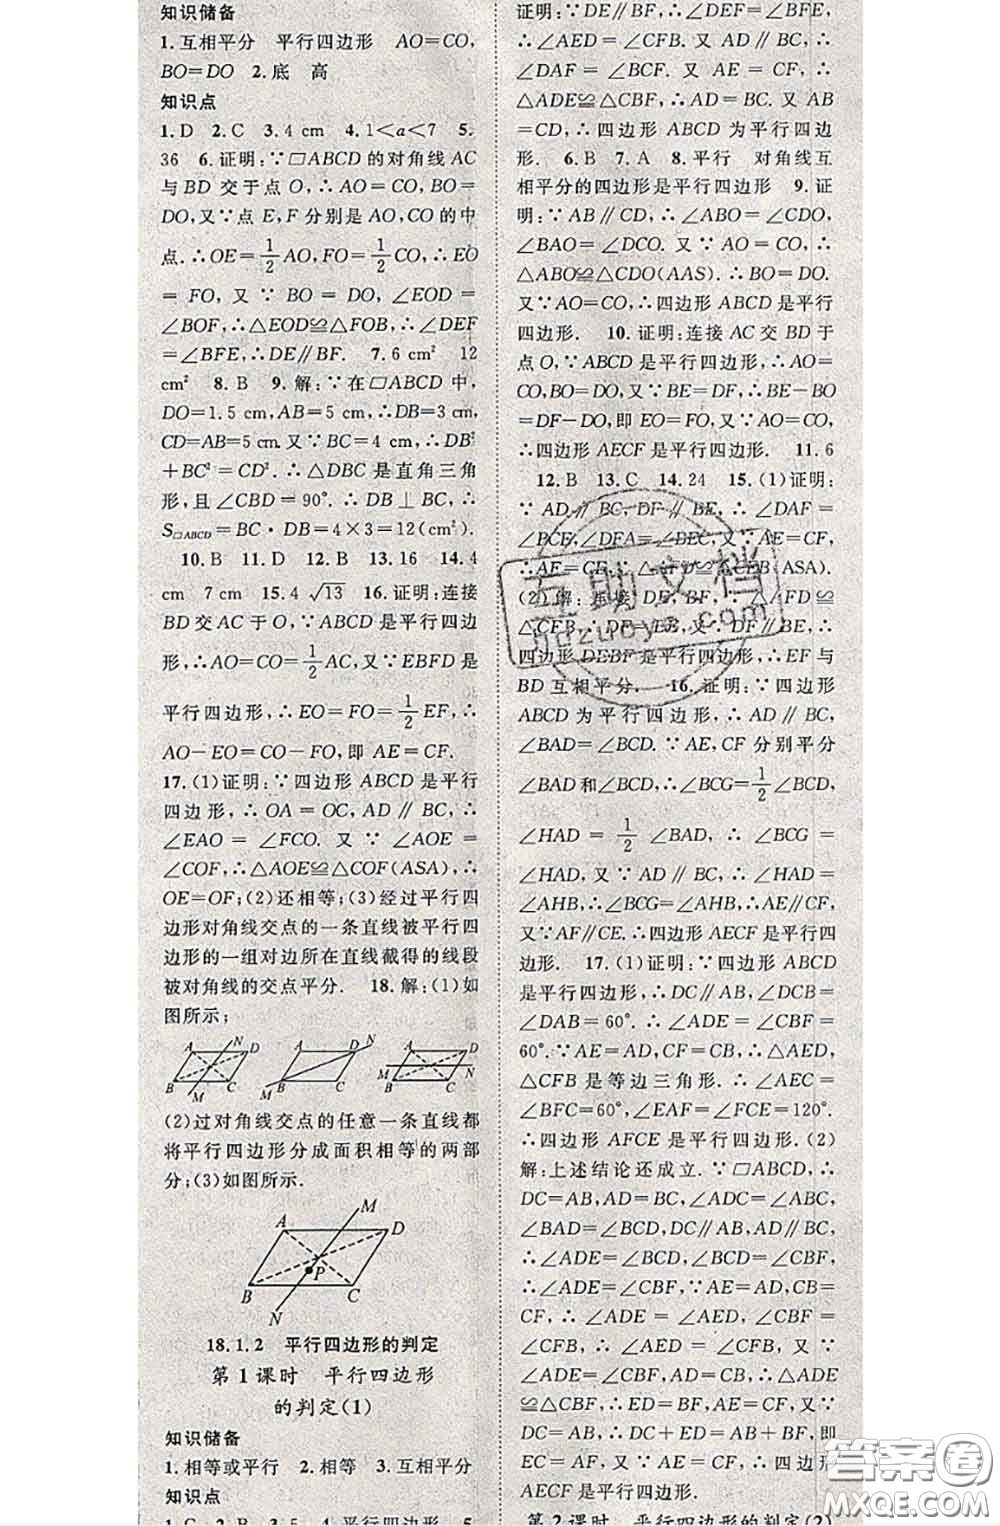 知识储备
1.互相平分　平行四边形　AO=CO,
BO=DO　2.底　高
知识点
1.D　2.C　3.4 cm　4.1<a<7　5.
36　6.证明:∵▱ABCD的对角线AC
与BD交于点O,∴AO=CO,BO=
DO,又∵点E,F分别是AO,CO的中
点.∴OE=1/2AO,FO=1/2CO,∴EO
=FO,又∵BO=DO,∠EOD=
∠BOF,∴△EOD≌△FOB,∴∠DEF
=∠BFE,∴DE∥BF.　7.6 cm²　12
cm²　8.B　9.解:∵在▱ABCD中,
DO=1.5 cm,AB=5 cm,∴DB=3 cm,
CD=AB=5 cm.又∵BC=4 cm,∴DB²
+BC²=CD².∴△DBC是直角三角
形,且∠CBD=90°.∴DB⊥BC,∴
S▱ABCD=BC·DB=4×3=12(cm²).
10.B　11.D　12.B　13.16　14.4
cm　7 cm　15.4√13　16.证明:连接
BD交AC于O,∵ABCD是平行四边
形,∴AO=CO=1/2AC,又∵EBFD是
平行四边形,∴EO=FO=1/2EF,∴
AO-EO=CO-FO,即AE=CF.
17.(1)证明:∵四边形ABCD是平行
四边形,∴OA=OC,AD∥BC,∴
∠EAO=∠FCO.又∵∠AOE=
∠COF,∴△AOE≌△COF(ASA).∴
OE=OF;(2)还相等;(3)经过平行四
边形对角线交点的一条直线被平行四
边形的一组对边所在直线截得的线段
被对角线的交点平分.　18.解:(1)如
图所示;
A　N　D　B　M　C　A　D　N　M　B　C　A　D　M　N　B　C
(2)过对角线交点的任意一条直线都
将平行四边形分成面积相等的两部
分;(3)如图所示.
M
A　D
P
B　C
N
18.1.2　平行四边形的判定
第1课时　平行四边形
的判定(1)
知识储备
1.相等或平行　2.相等　3.互相平分
知识点
1.C　2.B　3.平行四边形　4.4　5.
证明:∵DE∥BF,∴∠DEF=∠BFE,
∴∠AED=∠CFB.又AD∥BC,∴
∠DAF=∠BCF.又AE=CF,∴
△ADE≌△CBF,∴AD=BC.又AB
=CD,∴四边形ABCD为平行四边
形.　6.B　7.A　8.平行　对角线互
相平分的四边形是平行四边形　9.证
明:∵AB∥CD,∴∠ABO=∠CDO,
∠BAO=∠DCO.又∵AO=CO,∴
△ABO≌△CDO(AAS).∴BO=DO.
又∵AO=CO,∴四边形ABCD是平行
四边形.　10.证明:连接AC交BD于
点O,∵ABCD是平行四边形,∴AO=
CO,BO=DO,又∵BE=DF,∴BE-BO
=DF-DO,即EO=FO,又∵AO=CO,
∴四边形AECF是平行四边形.　11.6
12.B　13.C　14.24　15.(1)证明:
∵AD∥BC,DF∥BE,∴∠DAF=
∠BCE,∠DFA=∠BEC.又∵AE=CF,
∴AF=CE.∴△AFD≌△CEB(ASA).
(2)解:连接DE,BF,∵△AFD≌
△CEB,∴DF=EB,又∵DF∥BE,∴
四边形DEBF是平行四边形,∴EF与
BD互相平分.　16.证明:∵四边形
ABCD为平行四边形,∴AD∥BC,
∠BAD=∠BCD.∵AE,CF分别平分
∠BAD和∠BCD,∴∠BCG=1/2∠BCD,
∠HAD=1/2∠BAD,∴∠BCG=
∠HAD,又∵AD∥BC,∴∠HAD=
∠AHB,∴∠BCG=∠AHB,∴AE∥CF,
又∵AF∥CE.∴四边形AECF是平行四
边形.　17.(1)证明:∵四边形ABCD
是平行四边形,∴DC∥AB,∠DCB=
∠DAB=60°.∴∠ADE=∠CBF=
60°.∵AE=AD,CF=CB,∴△AED,
△CFB是等边三角形.∴∠AEC=
∠BFC=60°,∠EAF=∠FCE=120°.
∴四边形AFCE是平行四边形.(2)
解:上述结论还成立.∵▱ABCD,∴
DC=AB,AD=BC,∠ADC=∠ABC,
∠BAD=∠BCD,DC∥AB,AD∥BC,
∴∠ADE=∠BCD,∠CBF=∠BAD,
∴∠ADE=∠CBF,∵AE=AD,CB=
CF,∴∠ADE=∠AED,∠CBF=
∠CFB.∵∠ADE=∠CBF,∴△ADE
≌△CBF,∴ED=BF,AE=CF,又∵
DC=AB,∴DC+ED=AB+BF,即
EC=AF,又∵AE=CF,∴四边形
AECF是平行四边形.
第2课时　平行四边形的判定(2)
互助文档
huzuoye.com
答案圈
MXQE.COM